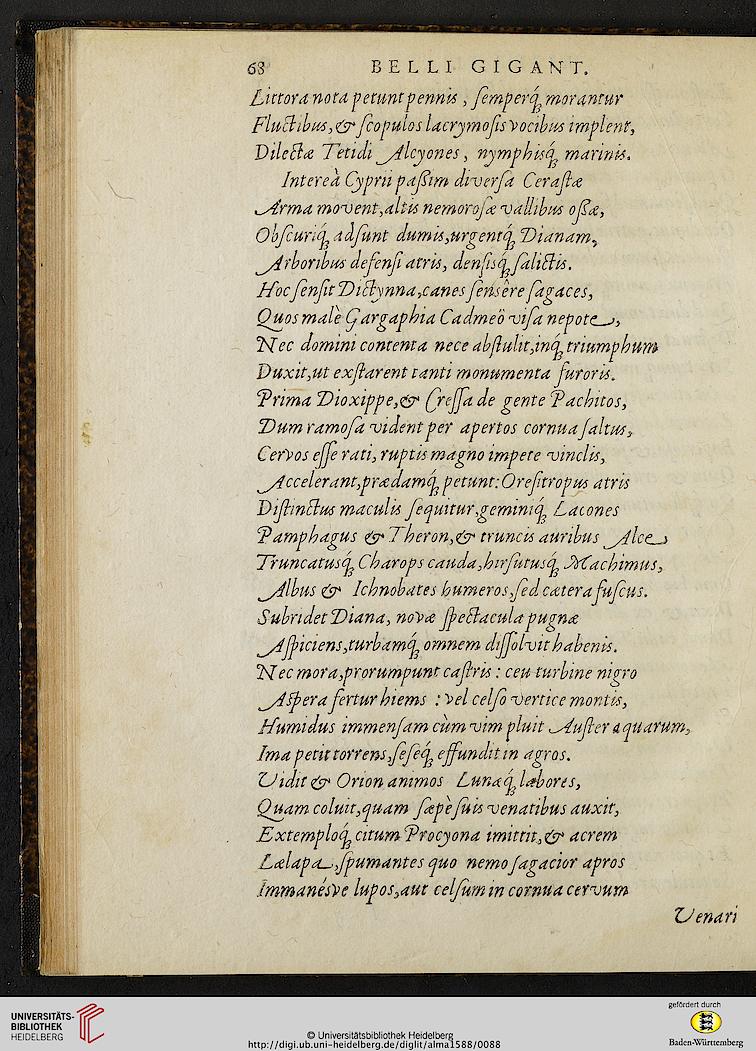 68 BELLI GIGANT.
Littora nota petunt pennis, semperq́; morantur
Fluctibus, & scopulos lacrymosis vocibus implent,
Dilectæ Tetidi Alcyones, nymphisq́; marinis.
Intereà Cyprii paßim diversa Cerastæ
Arma movent, altis nemorosæ vallibus oßæ,
Obscuriq́; adsunt dumis, urgentq́; Dianam,
Arboribus defensi atris, densisq́; salictis.
Hoc sensit Dictynna, canes sensêre sagaces,
Quos malè Gargaphia Cadmeö visa nepote,
Nec domini contenta nece abstulit, inq́; triumphum
Duxit, ut exstarent tanti monumenta furoris.
Prima Dioxippe, & Cressa de gente Pachitos,
Dum ramosa vident per apertos cornua saltus,
Cervos esse rati, ruptis magno impete vinclis,
Accelerant, prædamq́; petunt: Oresitropus atris
Distinctus maculis sequitur, geminiq́; Lacones
Pamphagus & Theron, & truncis auribus Alce
Truncatusq́; Charops cauda, hirsutusq́; Machimus,
Albus & Ichnobates humeros, sed cætera fuscus.
Subridet Diana, novæ spectacula pugnæ
Aspiciens, turbamq́; omnem dissolvit habenis.
Nec mora, prorumpunt castris: ceu turbine nigro
Aspera fertur hiems: vel celso vertice montis,
Humidus immensam cùm vim pluit Auster aquarum,
Ima petit torrens, seseq́; effundit in agros.
Vidit & Orion animos Lunæq́; labores,
Quam coluit, quam sæpè suis venatibus auxit,
Extemploq́; citum Procyona imittit, & acrem
Lælapa, spumantes quo nemo sagacior apros
Immanésve lupos, aut celsum in cornua cervum
Venari
UNIVERSITÄTS-
BIBLIOTHEK
HEIDELBERG
© Universitätsbibliothek Heidelberg
http://digi.ub.uni-heidelberg.de/diglit/alma1588/0088
gefördert durch
Baden-Württemberg